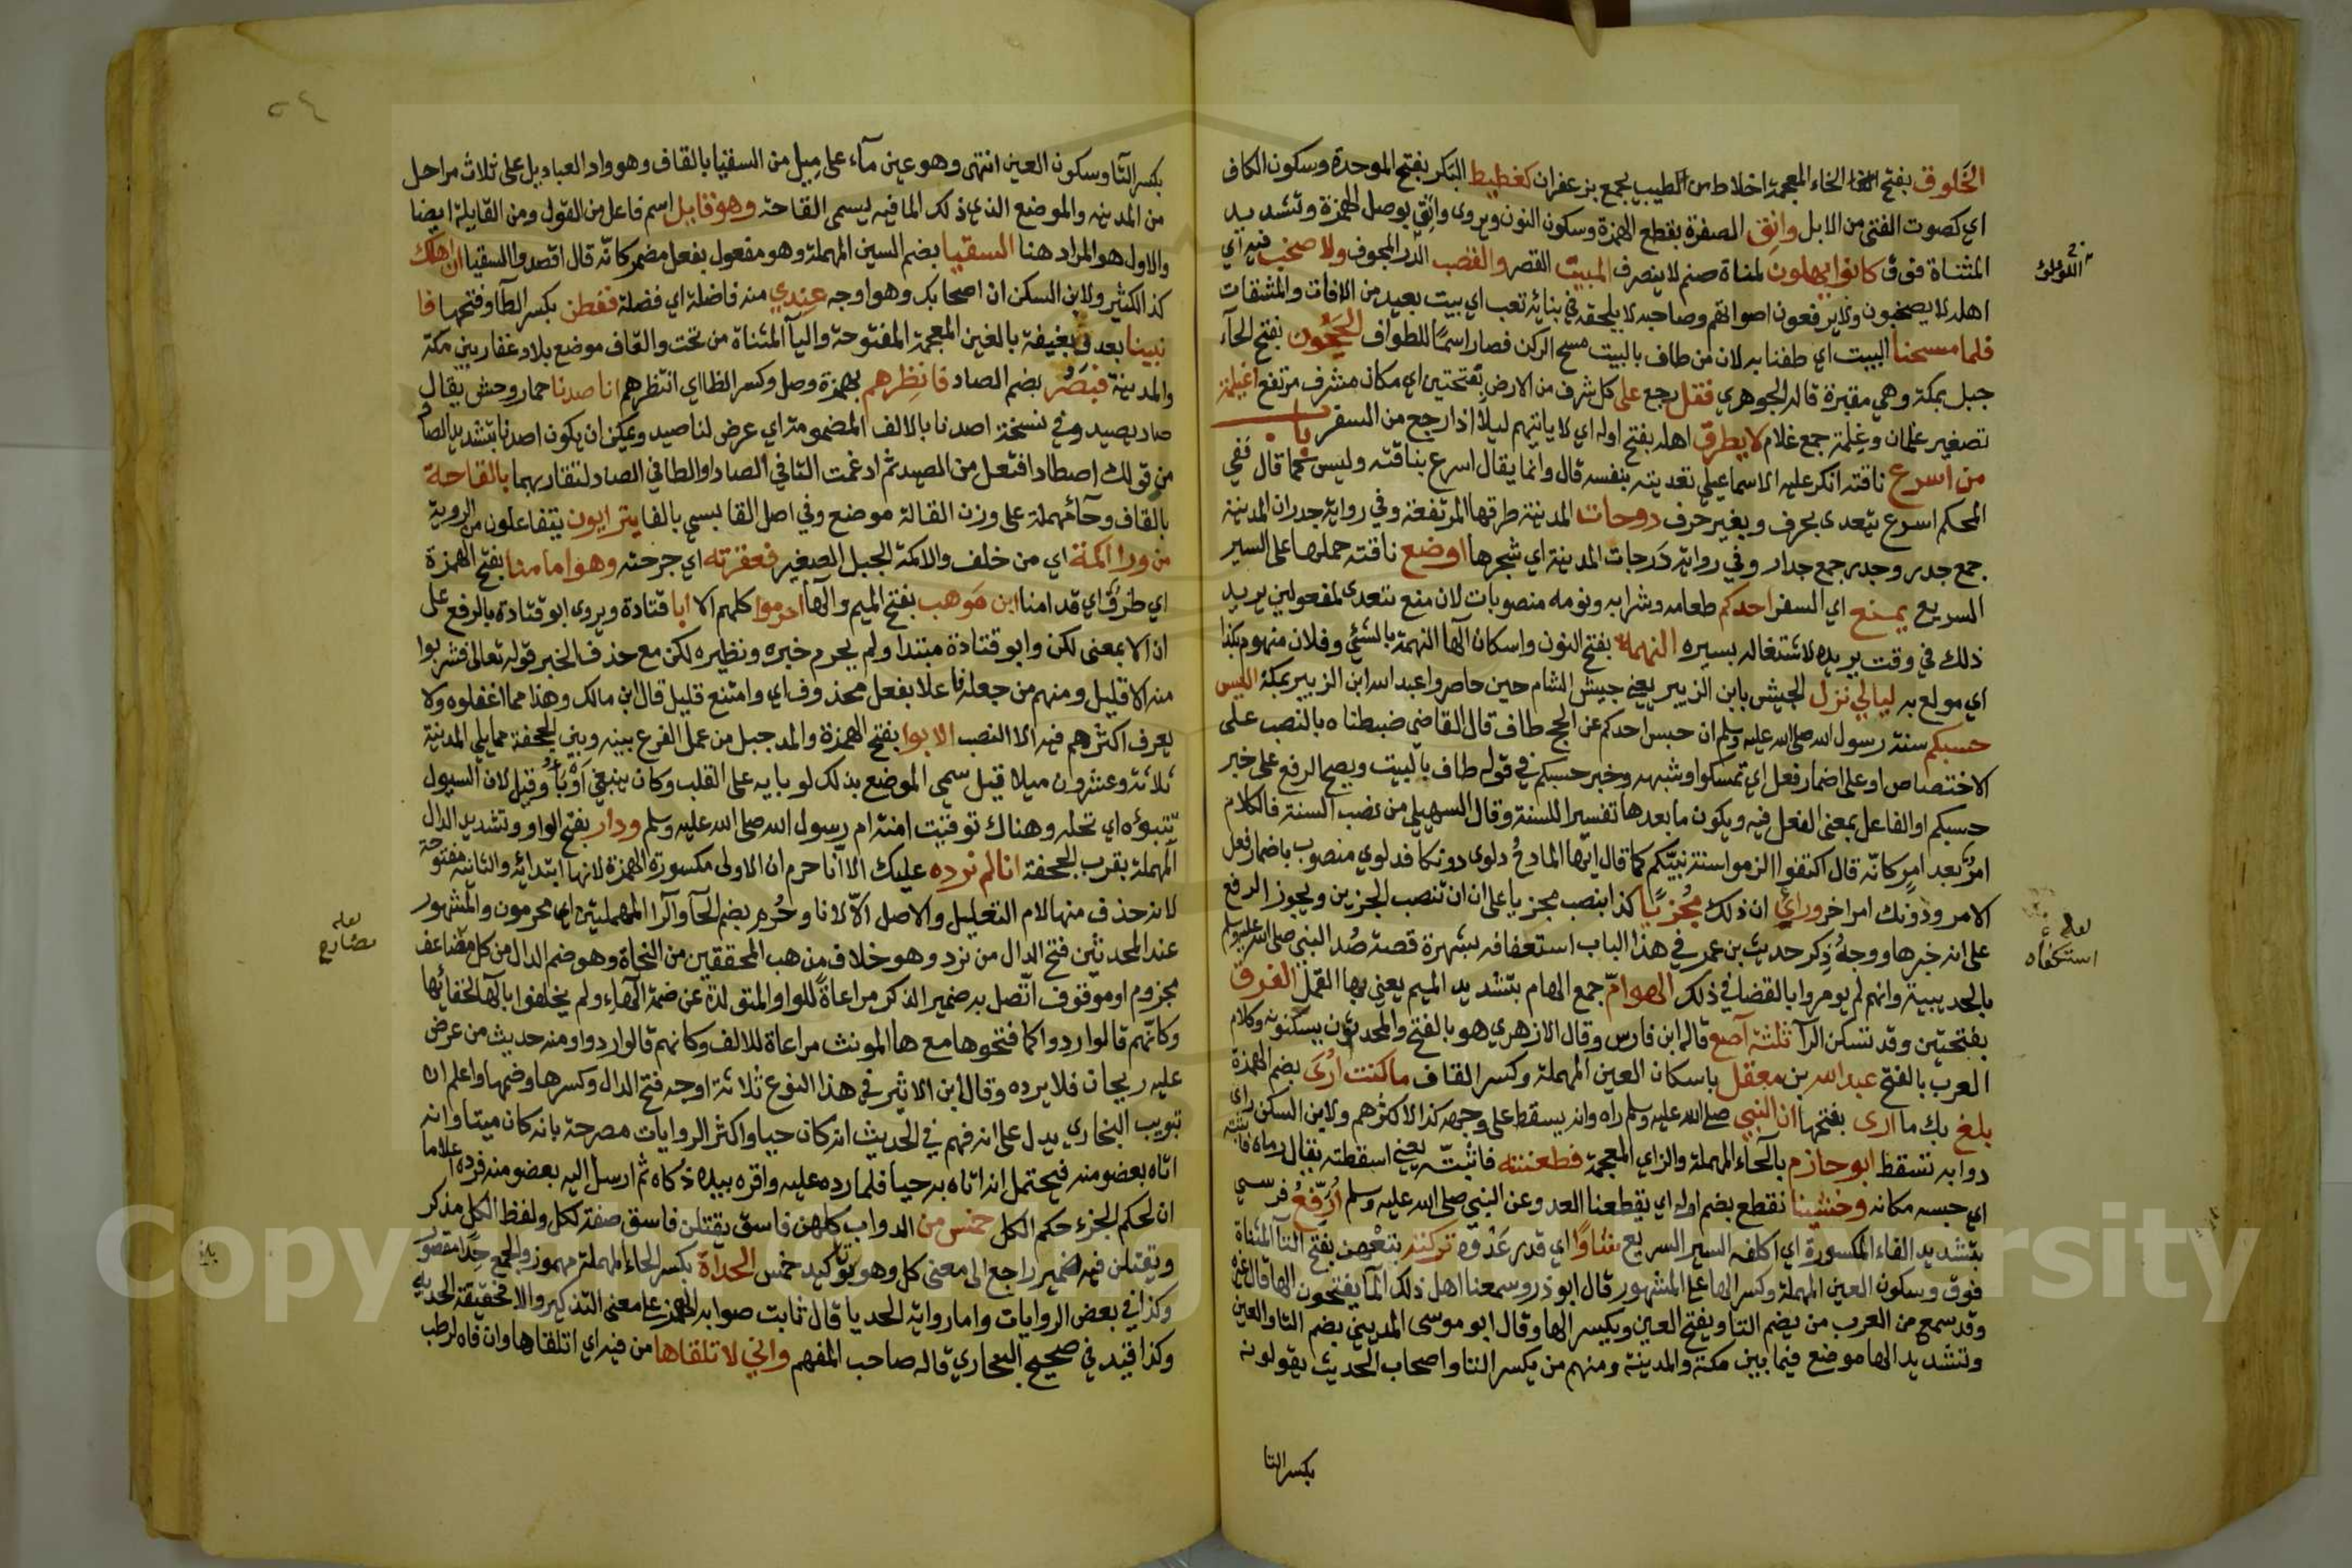 الخلوق بفتح الخاء المعجمة اخلاط من الطيب يجمع بزعفران كغطيط البكر بفتح الموحدة وسكون الكاف
اي كصوت الفتى من الابل وانق الصفرة بقطع الهمزة وسكون النون ويروى واتق بوصل الهمزة وتشديد
المثناة فوق كانوا يهلون لمناة صنم لا ينصرف المبيت القصر والقصب الدر المجوف ولا صخب فيه اي
اهله لا يصخبون ولا يرفعون اصواتهم وصاحبه لا يلحقه في بنائه تعب اي بيت بعيد من الافات والمشقات
فلما مسحنا البيت اي طفنا به لان من طاف بالبيت مسح الركن فصار اسمًا للطواف الحجون بفتح الحاء
جبل بمكة وهي مقبرة قاله الجوهري فقفل رجع على كل شرف من الارض بفتحتين اي مكان مشرف مرتفع اغيلمة
تصغير غلمان وغلمة جمع غلام لا يطرق اهله بفتح اوله اي لا ياتيهم ليلا اذا رجع من السفر باب
من اسرع ناقته انكر عليه الاسماعيلي تعديته بنفسه قال وانما يقال اسرع بناقته وليس كما قال ففي
المحكم اسرع يتعدى بحرف وبغير حرف دوحات المدينة طرقها المرتفعة وفي رواية جدران المدينة
جمع جدر وجدر جمع جدار وفي رواية درجات المدينة اي شجرها اوضع ناقته حملها على السير
السريع يمنع اي السفر احدكم طعامه وشرابه ونومه منصوبات لان منع تتعدى لمفعولين يريد
ذلك في وقت يريده لاشتغاله بسيره النهمة بفتح النون واسكان الها النهمة بالشئ وفلان منهوم بكذا
اي مولع به ليالي نزل الجيش بابن الزبير يعني جيش الشام حين حاصروا عبد الله ابن الزبير بمكة اليس
حسبكم سنة رسول الله صلى الله عليه وسلم ان حبس احدكم عن الحج طاف قال القاضي ضبطناه بالنصب على
الاختصاص او على اضمار فعل اي تمسكوا وشبهه وخبر حسبكم في قوله طاف بالبيت ويصح الرفع على خبر
حسبكم او الفاعل بمعنى الفعل فيه ويكون ما بعدها تفسيرا للسنة وقال السهيلي من نصب السنة فالكلام
امر بعد امر كانه قال اكتفوا الزموا سنة نبيكم كما قال ايها المادح دلوي دونكا فدلوي منصوب باضمار فعل
الامر ودونك امر اخر ورأي ان ذلك مجزيًا كذا بنصب مجزيا على ان ان تنصب الجزين ويجوز الرفع
على انه خبرها ووجه ذكر حديث بن عمر في هذا الباب استعفافه بشهرة قصة صد النبي صلى الله عليه وسلم
بالحديبية وانهم لم يومروا بالقضا في ذلك الهوام جمع الهام بتشديد الميم يعني بها القمل الفرق
بفتحتين وقد تسكن الرا ثلثة آصع قاله ابن فارس وقال الازهري هو بالفتح والمحدثون يسكنونه وكلام
العرب بالفتح عبد الله بن معقل باسكان العين المهملة وكسر القاف ما كنت ارى بضم الهمزة
بلغ بك ما ارى بفتحها ان النبي صلى الله عليه وسلم راه وانه يسقط على وجهه كذا لاكثرهم ولابن السكن راى
دوابه تسقط ابو حازم بالحاء المهملة والزاي المعجمة فطعنته فاثبته يعني اسقطته يقال رماه فاثبته
اي حبسه مكانه وخشينا نقطع بضم اوله اي يقطعنا العدو عن النبي صلى الله عليه وسلم ارفع فرسي
بتشديد الفاء المكسورة اي اكلفه السير السريع شاوًا اي قدر عدوه تركته بتعهن بفتح التا المثناة
فوق وسكون العين المهملة وكسر الها على المشهور قال ابو ذر وسمعنا اهل ذلك الما يفتحون الها قال غيره
وقد سمع من العرب من يضم التا ويفتح العين ويكسر الها وقال ابو موسى المديني بضم التا والعين
وتشديد الها موضع فيما بين مكة والمدينة ومنهم من يكسر التا واصحاب الحديث يقولونه
بكسر التا
لعله
استكفاه
بكسر التا وسكون العين انتهى وهو عين مآء على ميل من السقيا بالقاف وهو واد العباديل على ثلاث مراحل
من المدينه والموضع الذي ذلك الما فيه يسمى القاحة وهو قايل اسم فاعل من القول ومن القايلة ايضا
والاول هو المراد هنا السقيا بضم السين المهملة وهو مفعول بفعل مضمر كانه قال اقصدوا السقيا ان اهلك
كذا لكثير ولابن السكن ان اصحابك وهو اوجه عندي منه فاضلة اي فضلة ففطن بكسر الطا وفتحها فا
نبينا بعدو بغيقة بالغين المعجمة المفتوحة واليآ المثناة من تحت والقاف موضع بلاد غفار بين مكة
والمدينة فبصر بضم الصاد فانظرهم بهمزة وصل وكسر الظا اي انتظرهم انا صدنا حمار وحش يقال
صاد يصيد وفي نسخة اصدنا بالالف المضمومة اي عرض لنا صيد ويمكن ان يكون اصدنا بتشديد الصاد
من قولك اصطاد افتعل من الصيد ثم ادغمت التا في الصاد او الطا في الصاد لتقاربهما بالقاحة
بالقاف وحآء مهملة على وزن القالة موضع وفي اصل القابسي بالفا يترايون يتفاعلون من الروية
من ورا اكمة اي من خلف والاكمة الجبل الصغير فعقرته اي جرحته وهو امامنا بفتح الهمزة
اي ظرف اي قدامنا ابن موهب بفتح الميم والها احرموا كلهم الا ابا قتادة ويروى ابو قتادة بالرفع على
ان الا بمعنى لكن وابو قتادة مبتدا ولم يحرم خبره ونظيره لكن مع حذف الخبر قوله تعالى فشربوا
منه الا قليل ومنهم من جعله فاعلا بفعل محذوف اي وامتنع قليل قال ابن مالك وهذا مما اغفلوه ولا
يعرف اكثرهم فيه الا النصب الابوا بفتح الهمزة والمد جبل من عمل الفرع بينه وبين الجحفة مما يلي المدينة
ثلاثة وعشرون ميلا قيل سمي الموضع بذلك لوبايه على القلب وكان ينبغي اوبا وقيل لان السيول
تتبوءه اي تحله وهناك توفيت امنة ام رسول الله صلى الله عليه وسلم ودان بفتح الواو وتشديد الدال
المهملة بقرب الجحفة انا لم نرده عليك الا انا حرم ان الاولى مكسورة الهمزة لانها ابتدائه والثانية مفتوحة
لانه حذف منها لام التعليل والاصل الا لانا وحرم بضم الحآ والرا المهملتين اي محرمون والمشهور
عند المحدثين فتح الدال من نرد وهو خلاف مذهب المحققين من النحاة وهو ضم الدال من كل مضاعف
مجزوم او موقوف اتصل به ضمير المذكر مراعاة للواو المتولدة عن ضمة الهاء ولم يحفلوا بالهآ لخفائها
وكانهم قالوا ردوا كما فتحوها مع ها المونث مراعاة للالف وكانهم قالوا ردوا ومنه حديث من عرض
عليه ريحان فلا يرده وقال ابن الاثير في هذا النوع ثلاثة اوجه فتح الدال وكسرها وضمها واعلم ان
تبويب البخاري يدل على انه فهم في الحديث انه كان حيا واكثر الروايات مصرحة بانه كان ميتا وانه
اتاه بعضو منه فيحتمل انه اتاه به حيا فلما رده عليه واقره بيده ذكاه ثم ارسل اليه بعضو منه فرده اعلاما
ان لحكم الجزء حكم الكل خمس من الدواب كلهن فاسق يقتلن فاسق صفة لكل ولفظ الكل مذكر
ويقتلن فيه ضمير راجع الى معنى كل وهو تاكيد خمس الحدأة بكسر الحاء المهملة مهموز والجمع حدا مقصور
وكذا في بعض الروايات واما رواية الحديا قال ثابت صوابه الهمز على معنى التذكير والا فحقيقة الحدية
وكذا قيد في صحيح البخاري قاله صاحب المفهم واني لاتلقاها من فيه اي اتلقاها وان فاه لرطب
لعله